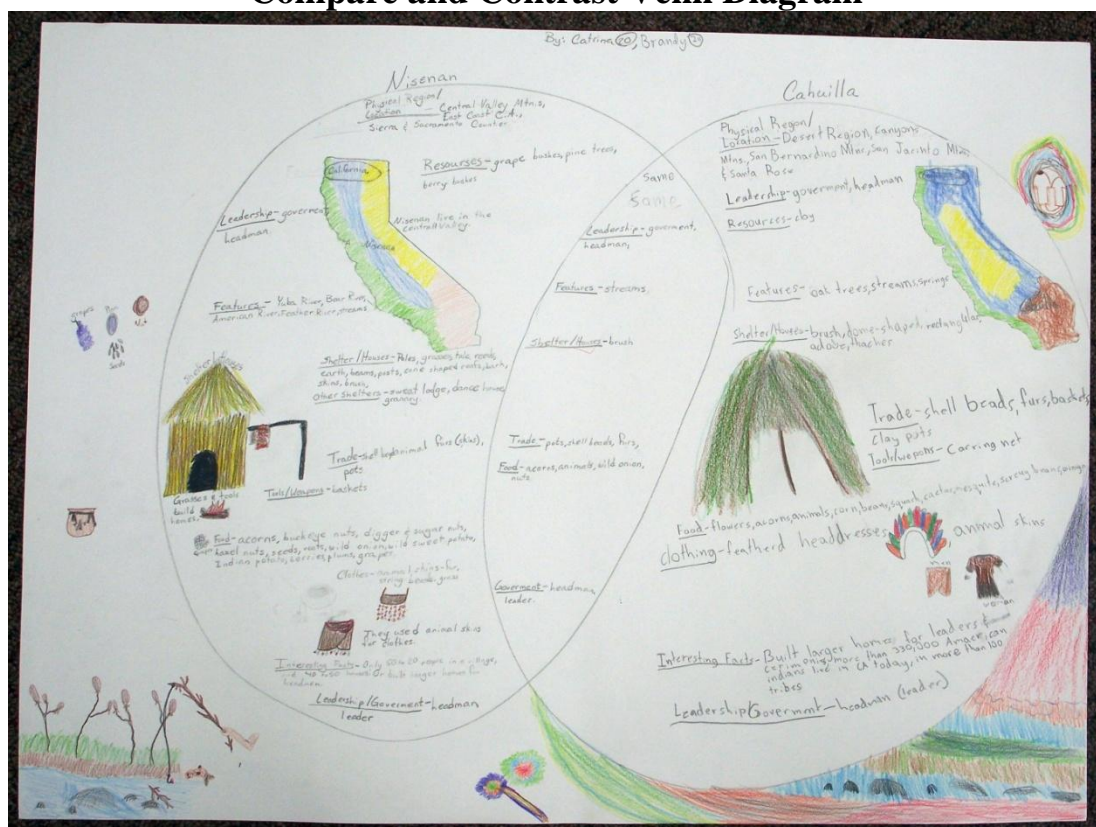 Compare and Contrast Venn Diagram
By: Catrina 20, Brandy
Nisenan
Physical Region/
Location - Central Valley Mtn.s,
East Cost C.A.,
Sierra & Sacramento Counties
Resourses - grape bushes, pine trees,
berry bushes
California
Leadership - goverment
headman.
Nisenan live in the
central valley.
Nisenan
Features - Yuba River, Bear River,
American River, Feather River, streams
grapes
Shelter/Houses - Poles, grasses, tule reeds,
earth, beams, posts, cone shaped roofs, bark,
skins, brush,
Other Shelters - sweat lodge, dance house,
granary
Trade - shell beads, animal furs (skins),
pots
Tools/Weapons - baskets
Grasses & tools
build
homes.
Food - acorns, buckeye nuts, digger & sugar nuts,
hazel nuts, seeds, roots, wild onion, wild sweet potato,
Indian potato, berries, plums, grapes.
Clothes - animal skins - fur,
string beads, grass
They used animal skins
for clothes.
Interesting Facts - Only
headmen
Leadership/Goverment - headman
leader
Same
Same
Leadership - goverment,
headman,
Features - streams,
Shelter/Houses - brush
Trade - pots, shell beads, furs,
Food - acorns, animals, wild onion,
nuts.
Goverment - headman,
leader.
Cahuilla
Physical Regon/
Location - Desert Region, canyons
Mtns, San Bernardino Mtns, San Jacinto Mtns
& Santa Rosa
Leadership - goverment, headman
Resources - clay
Features - oak trees, streams, springs
Shelter/Houses - brush, dome-shaped, rectangular,
adobe, thacher
Trade - shell beads, furs, baskets,
clay pots
Tools/weapons - Carring net
Food - flowers, acorns, animals, corn, beans, squash, cactus, mesquite, screwy bean,
clothing - featherd headdresses, animal skins
men
women
Interesting Facts - Built larger homes for leaders &
cerimonies, more than 330,000 American
indians live in CA today, in more than 100
tribes
Leadership/Goverment - headman (leader)